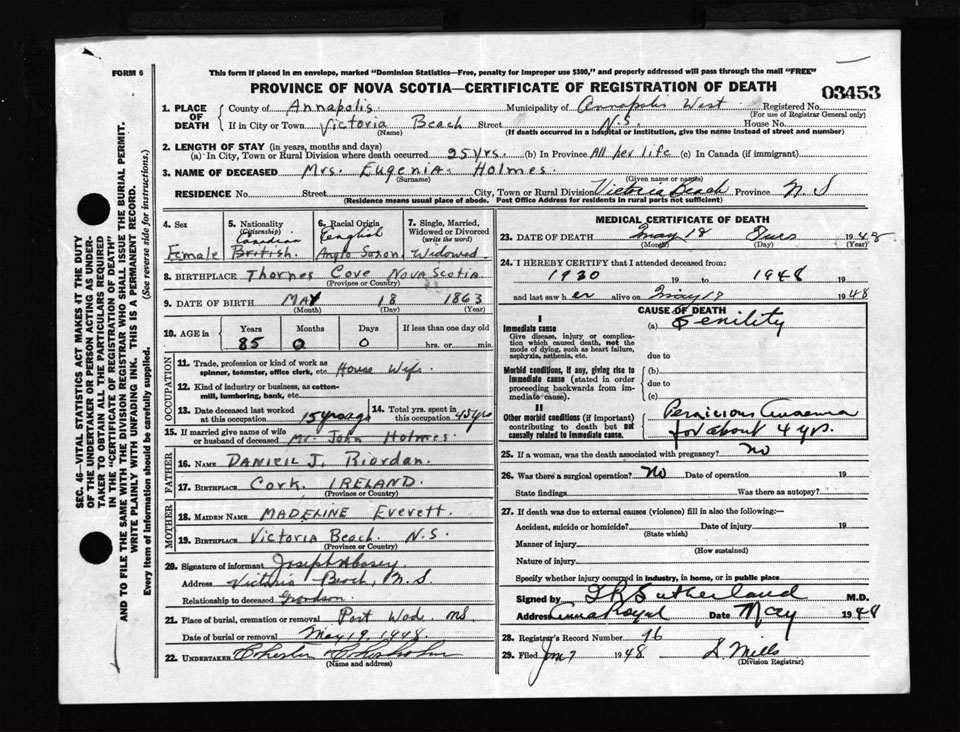 FORM 6
This form if placed in an envelope, marked "Dominion Statistics—Free, penalty for improper use $300," and properly addressed will pass through the mail "FREE"
PROVINCE OF NOVA SCOTIA—CERTIFICATE OF REGISTRATION OF DEATH
03453
1. PLACE OF DEATH
County of Annapolis Municipality of Annapolis West Registered No.
(For use of Registrar General only)
If in City or Town Victoria Beach Street N.S. House No.
(Name) (If death occurred in a hospital or institution, give the name instead of street and number)
2. LENGTH OF STAY (in years, months and days)
(a) In City, Town or Rural Division where death occurred 25 yrs. (b) In Province All her life (c) In Canada (if immigrant)
3. NAME OF DECEASED Mrs. Eugenia Holmes.
(Surname) (Given name or names)
RESIDENCE No. Street City, Town or Rural Division Victoria Beach Province N. S
(Residence means usual place of abode. Post Office Address for residents in rural parts not sufficient)
4. Sex
Female
5. Nationality
(Citizenship)
Canadian
British.
6. Racial Origin
English
Anglo Saxon
7. Single, Married, Widowed or Divorced
(write the word)
Widowed
8. BIRTHPLACE Thornes Cove Nova Scotia
(Province or Country)
9. DATE OF BIRTH MAY 18 1863
(Month) (Day) (Year)
10. AGE in
Years Months Days If less than one day old
85 0 0 hrs. or min.
OCCUPATION
11. Trade, profession or kind of work as spinner, teamster, office clerk, etc. House Wife
12. Kind of industry or business, as cotton-mill, lumbering, bank, etc.
13. Date deceased last worked at this occupation 15 yrs ago
14. Total yrs. spent in this occupation 45 yrs
15. If married give name of wife or husband of deceased Mr. John Holmes.
FATHER
16. NAME DANIEL J. Riordan.
17. BIRTHPLACE Cork, IRELAND.
(Province or Country)
MOTHER
18. MAIDEN NAME MADELINE Everett.
19. BIRTHPLACE Victoria Beach. N.S.
(Province or Country)
20. Signature of informant Joseph
Address Victoria Beach, N.S
Relationship to deceased Grandson
21. Place of burial, cremation or removal Port Wade NS.
Date of burial or removal May 19, 1948.
22. UNDERTAKER Chester Chisholm
(Name and address)
MEDICAL CERTIFICATE OF DEATH
23. DATE OF DEATH May 18 Tues 1948
(Month) (Day) (Year)
24. I HEREBY CERTIFY that I attended deceased from:
1930 19 to 1948 19
and last saw her alive on May 17 1948
CAUSE OF DEATH
I
Immediate cause
Give disease, injury or complication which caused death, not the mode of dying, such as heart failure, asphyxia, asthenia, etc.
(a) Senility
due to
Morbid conditions, if any, giving rise to immediate cause (stated in order proceeding backwards from immediate cause).
(b)
due to
(c)
II
Other morbid conditions (if important) contributing to death but not causally related to immediate cause.
Pernicious Anaemia
for about 4 yrs.
25. If a woman, was the death associated with pregnancy? no
26. Was there a surgical operation? no Date of operation 19
State findings Was there an autopsy?
27. If death was due to external causes (violence) fill in also the following:—
Accident, suicide or homicide? Date of injury 19
(State which)
Manner of injury
(How sustained)
Nature of injury
Specify whether injury occurred in industry, in home, or in public place
Signed by Sutherland M.D.
Address Anna Royal Date May 1948
28. Registrar's Record Number 76
29. Filed Jun 7 1948 Mills
(Division Registrar)
SEC. 46—VITAL STATISTICS ACT MAKES IT THE DUTY
OF THE UNDERTAKER OR PERSON ACTING AS UNDER-
TAKER TO OBTAIN ALL THE PARTICULARS REQUIRED
IN THE "CERTIFICATE OF REGISTRATION OF DEATH"
AND TO FILE THE SAME WITH THE DIVISION REGISTRAR WHO SHALL ISSUE THE BURIAL PERMIT.
WRITE PLAINLY WITH UNFADING INK. THIS IS A PERMANENT RECORD.
Every item of information should be carefully supplied. (See reverse side for instructions.)